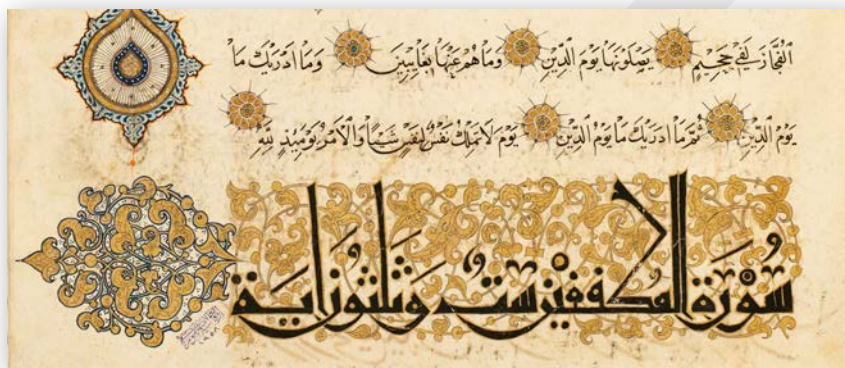 الفُجَّارَ لَفِي جَحِيمٍ يَصْلَوْنَهَا يَوْمَ الدِّينِ وَمَا هُمْ عَنْهَا بِغَائِبِينَ وَمَا أَدْرَيكَ مَا
يَوْمُ الدِّينِ ثُمَّ مَا أَدْرَيكَ مَا يَوْمُ الدِّينِ يَوْمَ لَا تَمْلِكُ نَفْسٌ لِنَفْسٍ شَيْئًا وَالْأَمْرُ يَوْمَئِذٍ لِلَّهِ
سُورَة المُطَففين ست وثلثون اية